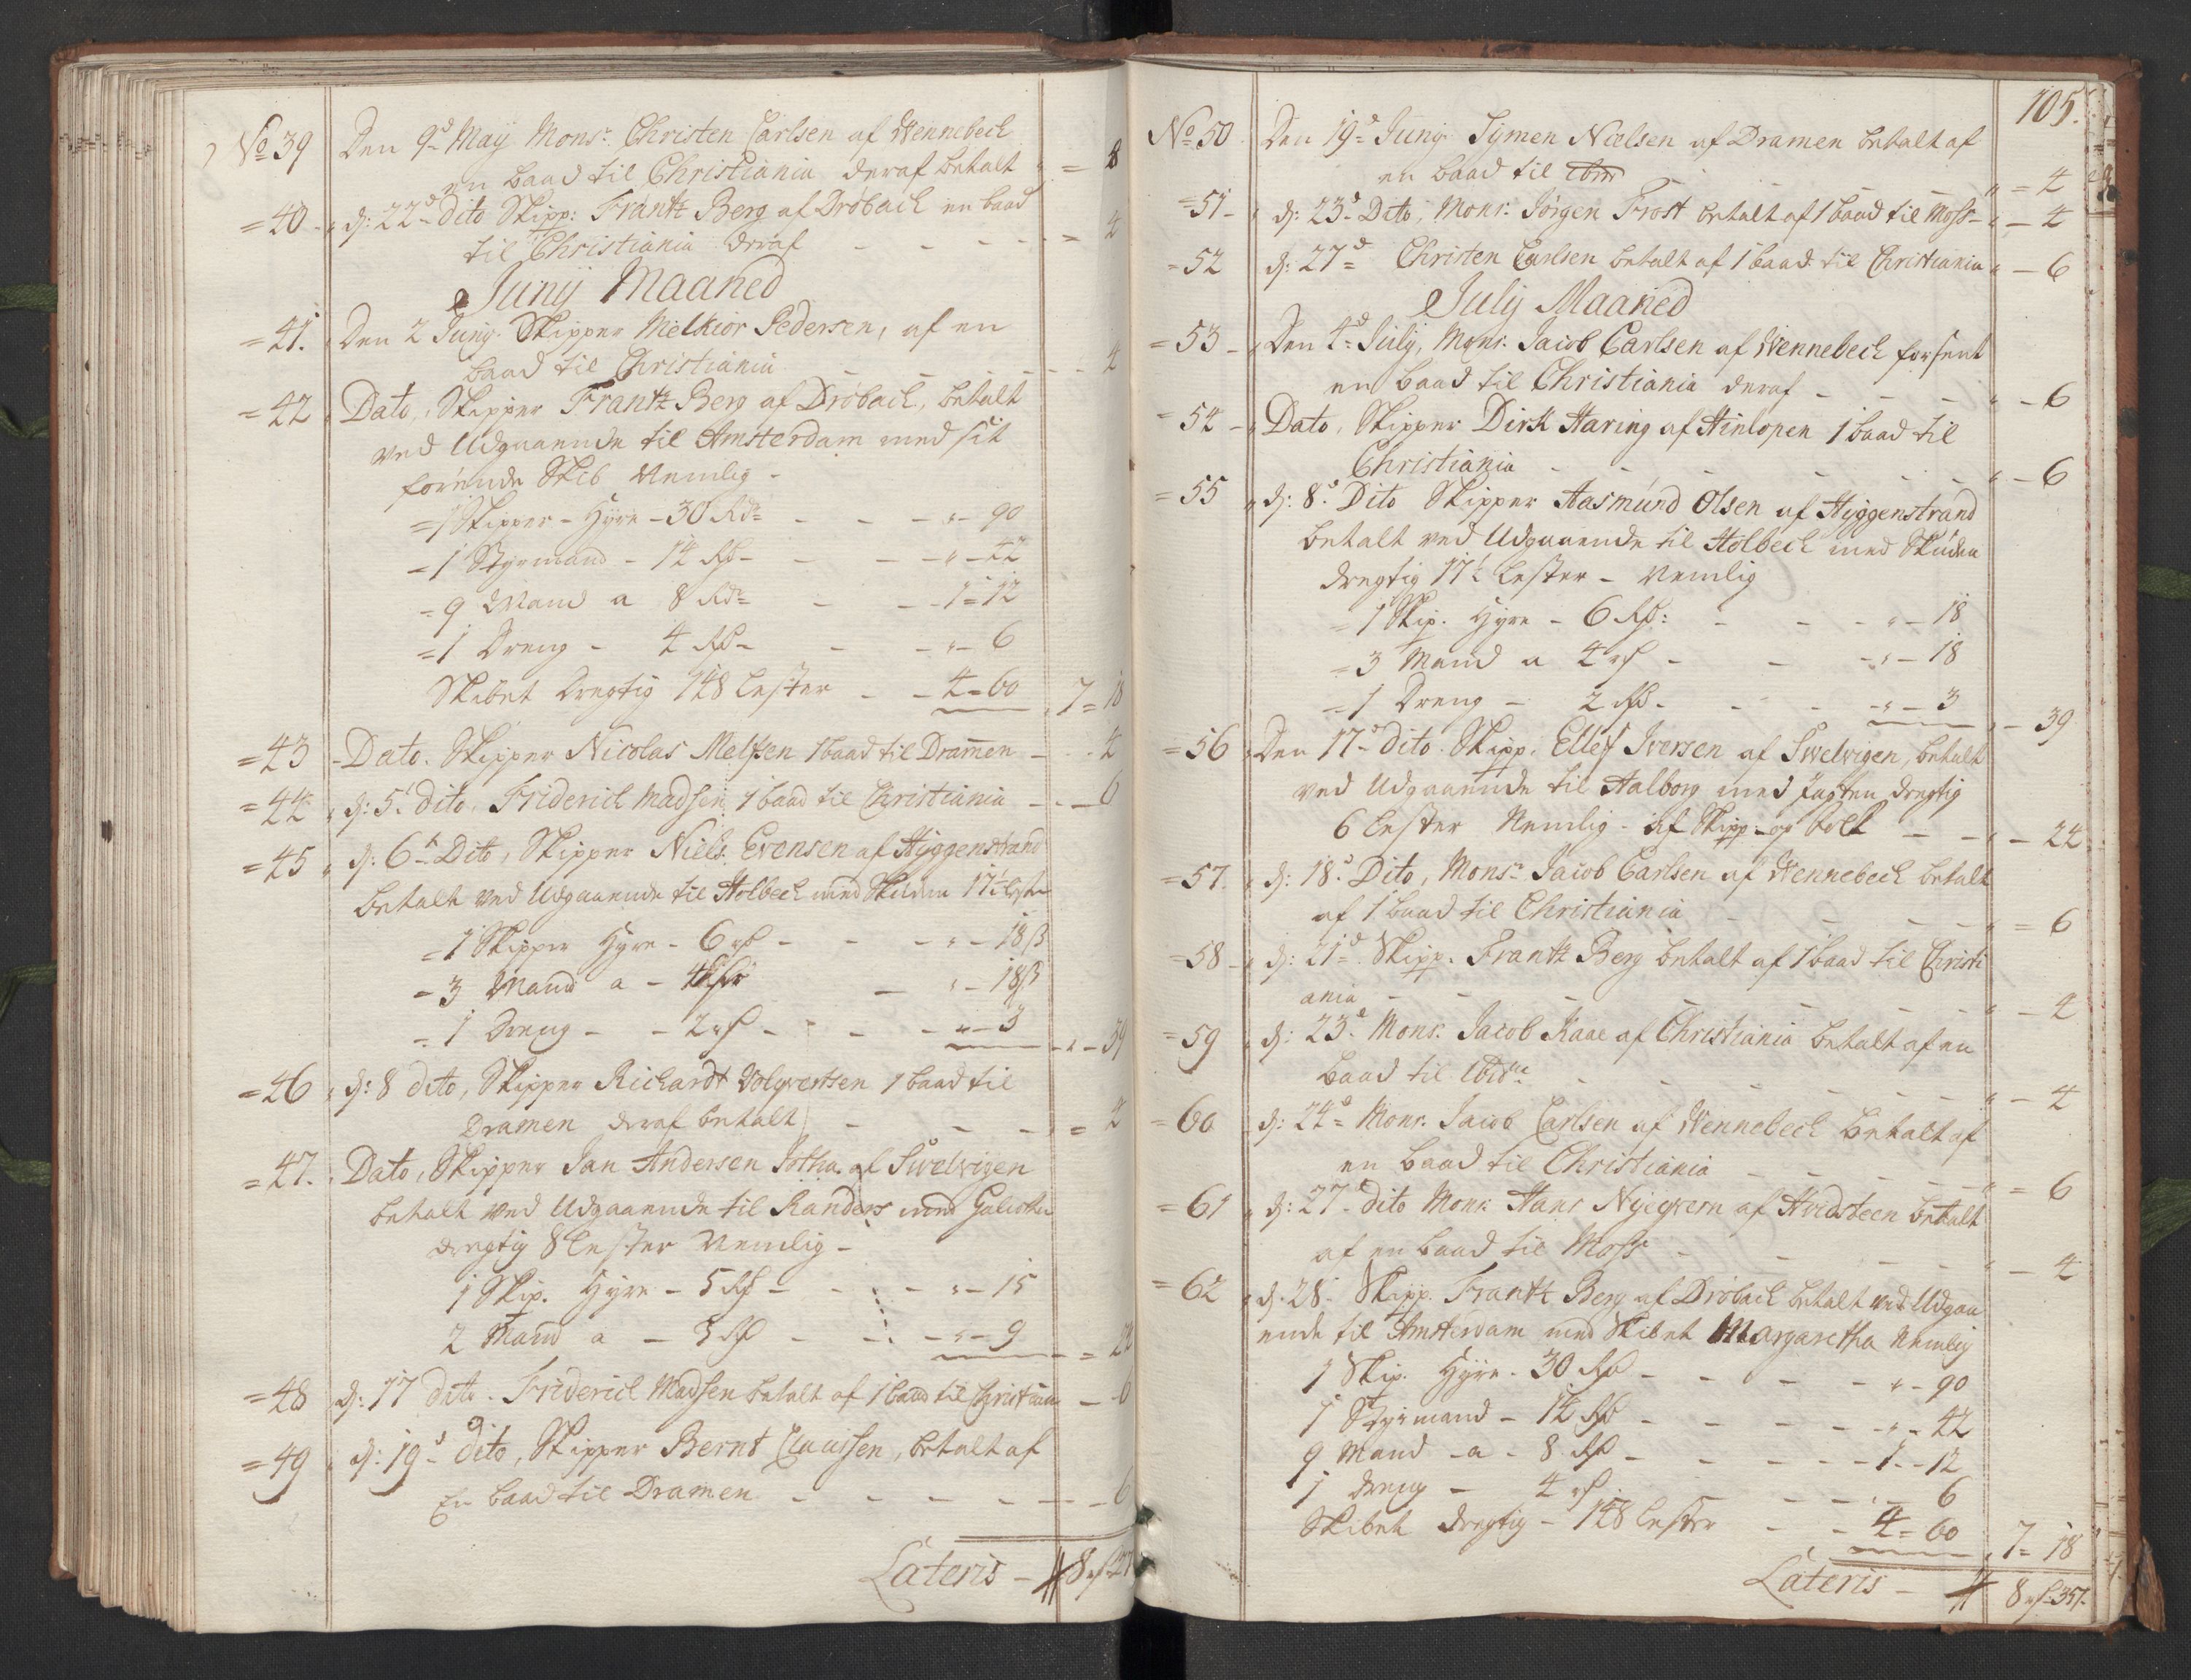 No 39 Den 9d May Monsr. Christen Carlsen af Wennebech
en baad til Christiania deraf betalt " = 8
= 40 - d: 22d dito Skipp: Frantz Berg af Drøbach en baad
til Christiania deraf - - - - = 4
Junij Maaned
= 41. Den 2 Junij. Skipper Melkior Pedersen, af en
baad til Christiania - - - - 4
= 42 Dato, Skipper Frantz Berg af Drøbach, betalt
ved Udgaaende til Amsterdam med sit
førende Skib Nemlig -
= 1 Skipper - Hyre - 30 Rdr - - - " - 90
= 1 Styrmand - 14 Rd - - - " - 42
= 9 Mand a 8 Rdr - - 1 = 12
= 1 Dreng - 4 Rd - - " - 6
Skibet Dregtig 148 Lester - - 4 - 60 7 = 18
= 43 - Dato. Skipper Nicolas Melsen 1 baad til Dramen - - 4
= 44 d: 5. dito, Friderich Madsen 1 baad til Christiania - - 6
= 45 d: 6t Dito, Skipper Niels Evensen af Hyggenstrand
betalt ved Udgaaende til Holbech med Skuden 17½ Lester
= 1 Skipper Hyre - 6 rd - - - " - 18 ß
= 3 Mand a - - " - 18 ß
= 1 Dreng - - 2 rd - - - " - 3 - " - 39
= 46 d: 8 dito, Skipper Richardt Volqvertsen 1 baad til
Dramen deraf betalt - - - = 4
= 47. Dato, Skipper Jan Andersen af Swelvigen
betalt ved Udgaaende til Randers med Galiothen
dregtig 8 Lester Nemlig -
1 Skip. Hyre - 5 Rd - - - " - 15
2 Mand a - 3 Rd - - - " - 9 - = 24
= 48 d: 17 dito. Friderich Madsen betalt af 1 baad til Christiania - 6
= 49 d: 19d dito, Skipper Bernt Claussen, betalt af
En baad til Dramen - - - - - 6
Lateris - 8 rd 27
105.
No. 50 Den 19d Junij Symen Nielsen af Dramen betalt af
en baad til ibm " = 4
= 51 - d: 23d Dito, Monr. Jørgen Frost betalt af 1 baad til Moss - " - 4
= 52 d: 27d Christen Carlsen betalt af 1 baad til Christiania " - 6
July Maaned
= 53 - Den 4d July, Monr. Jacob Carlsen af Wennebech forsent
en baad til Christiania deraf - - - " - 6
= 54 - Dato, Skipper Dirk Haring af Hinlopen 1 baad til
Christiania - - - - - " - 6
= 55 d: 8d. Dito Skipper Aasmund Olsen af Hyggenstrand
betalt ved Udgaaende til Holbech med Skuden
dregtig 17½ Lester - Nemlig
= 1 Skip. Hyre - 6 Rd: - - - " - 18
= 3 Mand a 4 rd - - - " - 18
= 1 Dreng - 2 Rd. - - - " - 3 " - 39
= 56 Den 17d dito. Skipp: Ellef Iversen af Swelvigen, betalt
ved Udgaaende til Aalborg med Jagten dregtig
6 Lester Nemlig - af Skipp: og folk - - " - 24
= 57. d: 18d. Dito, Monsr Jacob Carlsen af Wennebech betalt
af 1 baad til Christiania - - - - " = 6
= 58 - d: 21d. Skipp. Frantz Berg betalt af 1 baad til Christi
ania - - - - - - " - 4
= 59 d: 23d Monr. Jacob Kaae af Christiania betalt af en
baad til ibidm - - - - - " - 4
= 60 d: 24d Monr. Jacob Carlsen af Wennebech betalt af
en baad til Christiania - - - - " = 6
= 61 d: 27d dito Monr. Hans Nyegvern af Hvidsteen betalt
af en baad til Moss - - - - " - 4
= 62 d. 28. Skipp. Frantz Berg af Drøbach betalt ved Udgaa
ende til Amsterdam med Skibet Margaretha Nemlig
1 Skip. Hyre - 30 Rd - - - - " - 90
1 Styrmand - 14 Rd - - - - " - 42
9 Mand - a - 8 Rd - - - - 1 - 12
1 dreng - 4 rd - - - - 6
Skibet dregtig - 148 Lester - - 4 = 60 7 = 18
Lateris - 8 rd 35